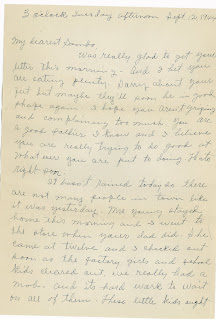 3 o'clock Tuesday afternoon Sept. 12, 1944
My dearest Sambo
Was really glad to get your
letter this morning. And I bet you
are eating plenty. Sorry about your
feet but maybe they'll soon be in good
shape again. I hope you aren't griping
and complaining too much. You are
a good soldier I know and I believe
you are really trying to be good at
what ever you are put to doing. That's
right hon.
It hasn't rained today so there
are not many people in town like
it was yesterday. Me & stayed
home this morning and I went to
the store when yours did. She
came at twelve and I checked out
soon as the factory girls and school
kids cleared out. We really had a
mob and its hard work to wait
on all of them. These little kids might